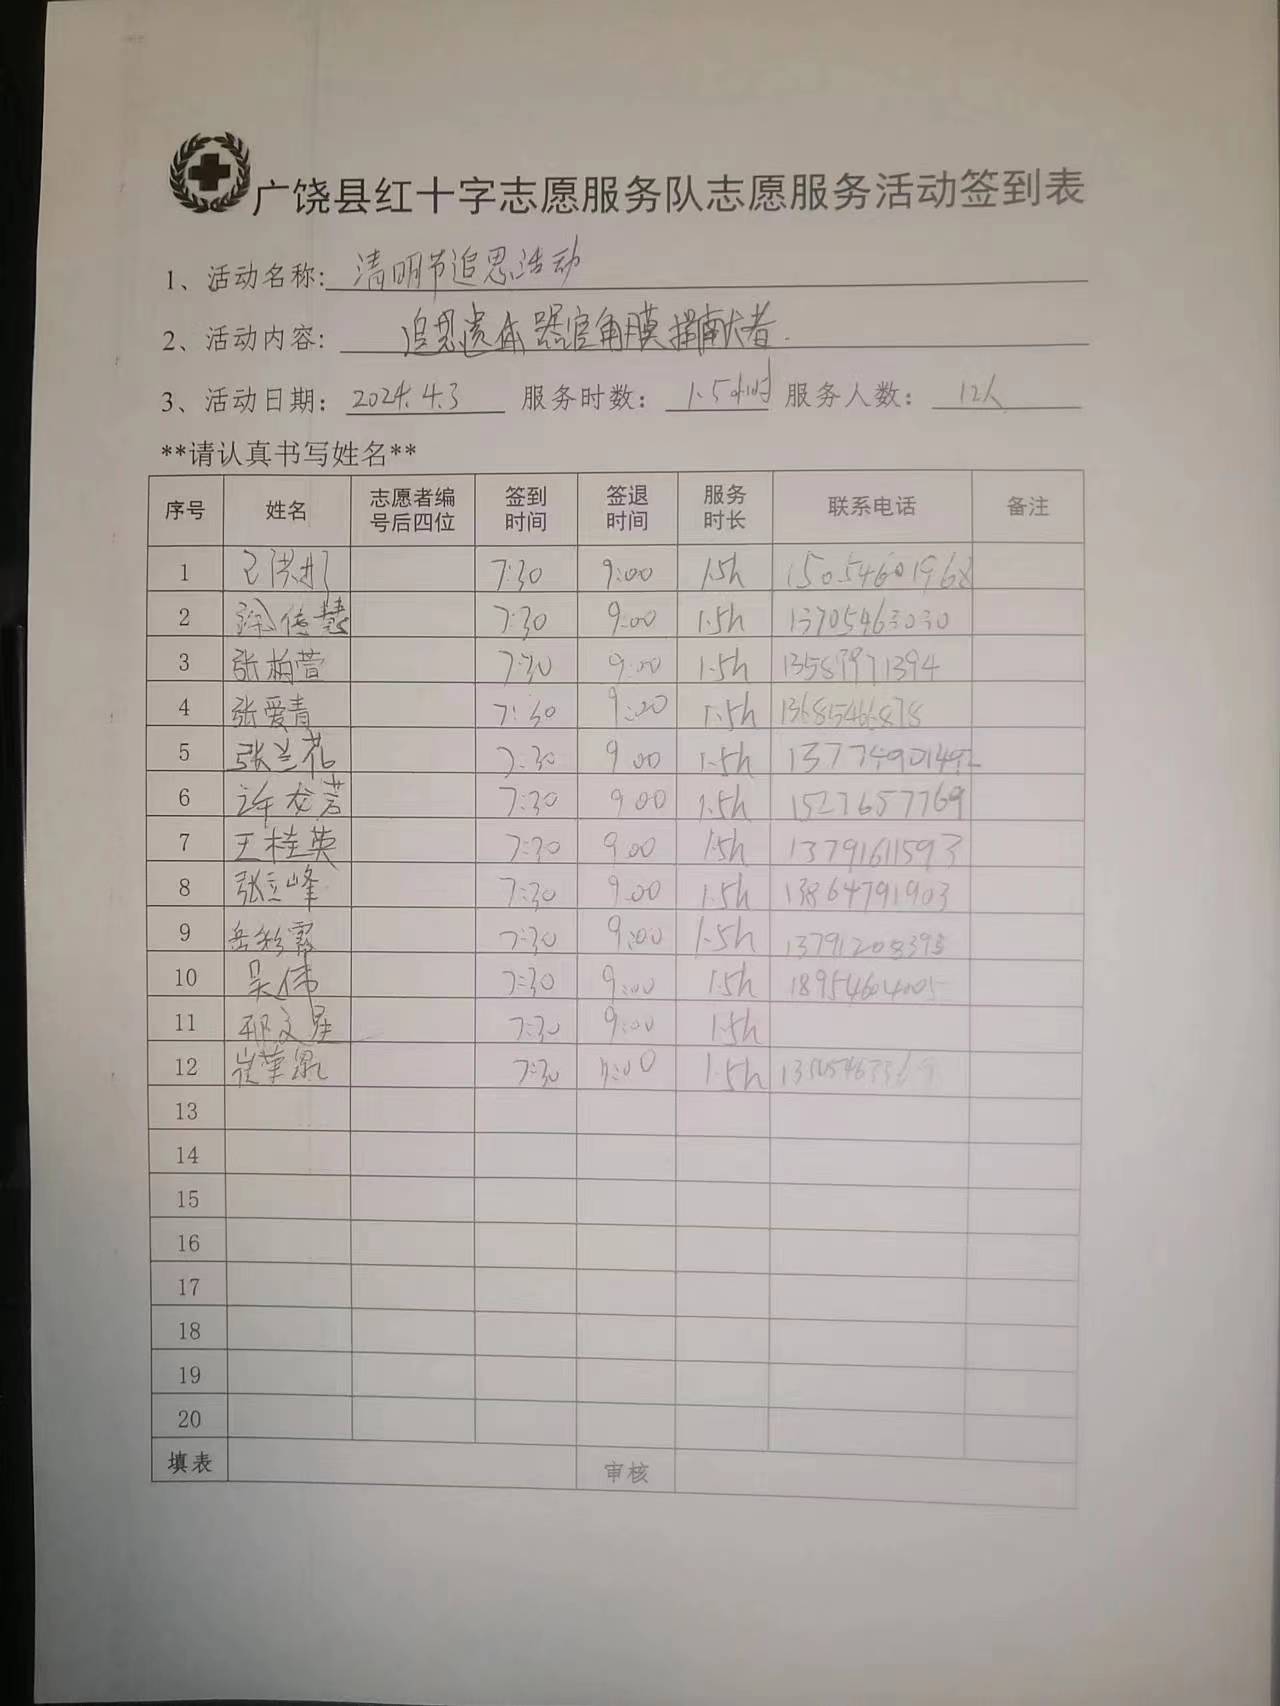 广饶县红十字志愿服务队志愿服务活动签到表
1、活动名称: 清明节追思活动
2、活动内容: 追思遗体器官角膜捐献者.
3、活动日期: 2024.4.3 服务时数: 1.5小时 服务人数: 12人
**请认真书写姓名**
序号 姓名 志愿者编号后四位 签到时间 签退时间 服务时长 联系电话 备注
1 7:30 9:00 1.5h 15054601968
2 徐传慧 7:30 9:00 1.5h 13705463030
3 张柏萱 7:30 9:00 1.5h
4 张爱青 7:30 9:00 1.5h 13685466878
5 张兰花 7:30 9:00 1.5h
6 许友芳 7:30 9:00 1.5h 15276577769
7 王桂英 7:30 9:00 1.5h 13791611593
8 张立峰 7:30 9:00 1.5h 13864791903
9 岳彩霞 7:30 9:00 1.5h 13791208393
10 吴伟 7:30 9:00 1.5h 18954604005
11 邢文星 7:30 9:00 1.5h
12 7:30 1.5h
13
14
15
16
17
18
19
20
填表 审核